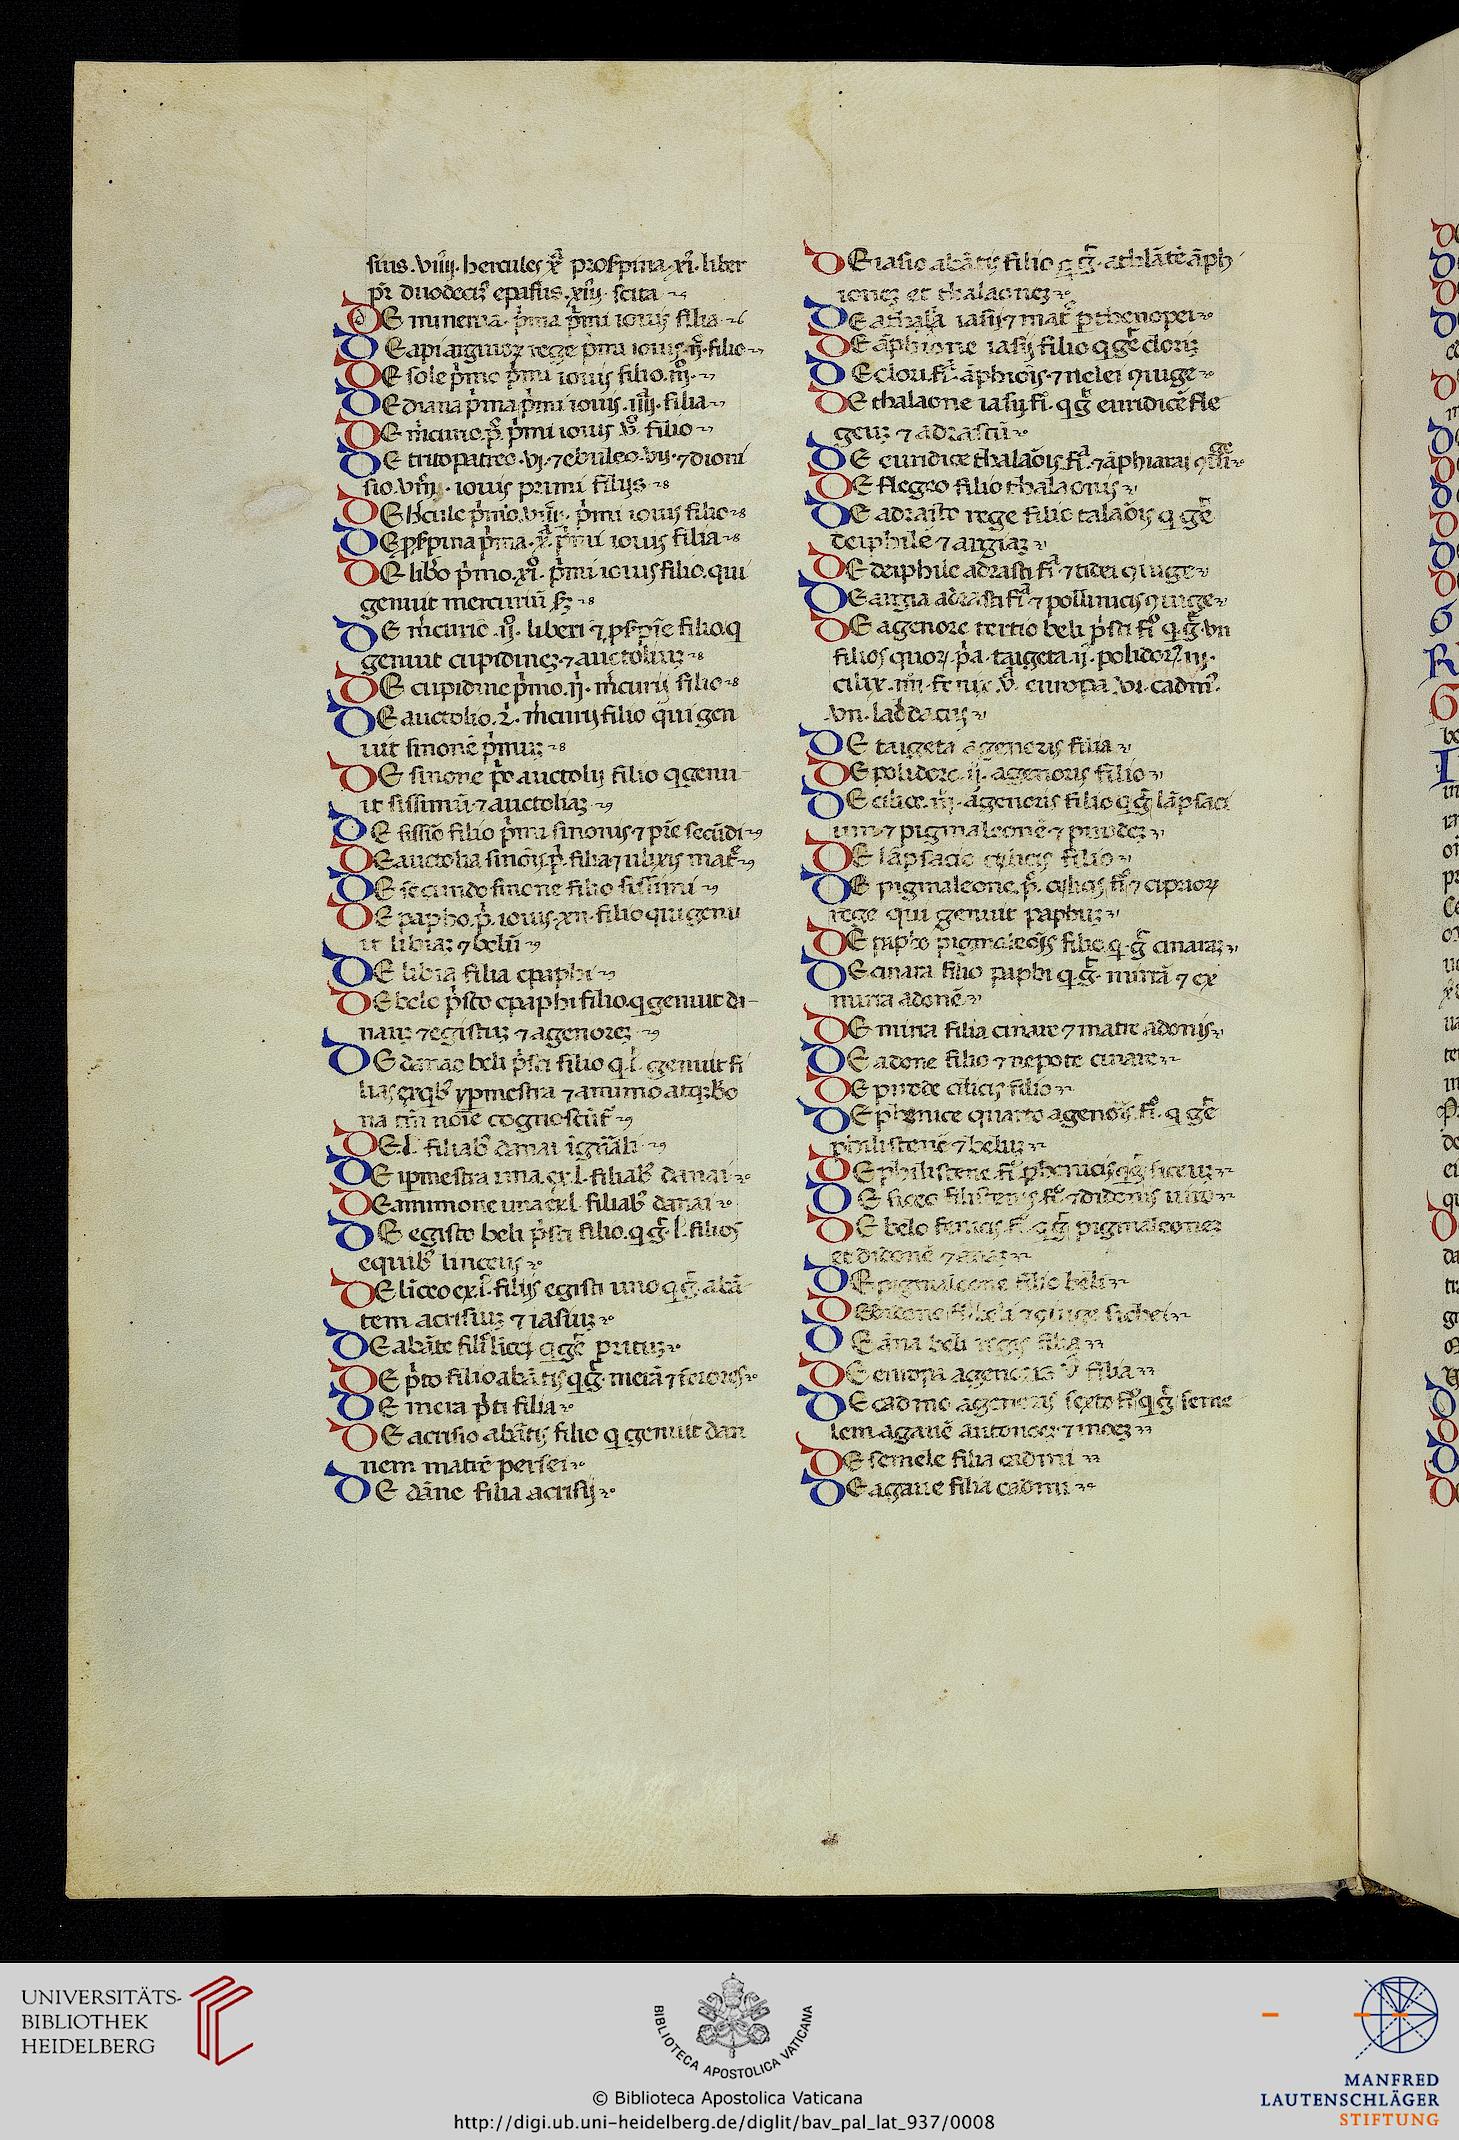 sius. viiij. hercules xͣ proserpina. xi. liber
pr̄ duodecīꝫ epafus. xiij. scita
DE minerva. p̄ma p̄mi iouis filia
DE api argiuoꝝ rege p̄mi iouis. ij. filio
DE sole p̄mo p̄mi iouis filio. iijͦ.
DE diana p̄ma p̄mi iouis. iiij. filia
DE m̄curio. pͦ. p̄mi iouis vͦ. filio
DE tritopatreo. vj. ⁊ ebuleo. vij. ⁊ dioni
sio. viij. iouis primi filijs
DE h̄cule p̄mo. viiij. p̄mi iouis filio
DE ꝓserpina p̄ma. xͣ. p̄mi iouis filia
DE lib̄o p̄mo. xiͦ. p̄mi iouis filio. qui
genuit mercuriū
DE m̄curio. ijͦ. liberi ⁊ filio. q
genuit cupidineꝫ. ⁊ auctoliuꝫ
DE cupidine p̄mo. ij. m̄curij filio
DE auctolio. 2. m̄curij filio qui gen
uit sinonē p̄muꝫ
DE sinone auctolij filio q genu
it sissimū. ⁊ auctoliaꝫ
DE sissīo filio p̄mi sinonis ⁊ pr̄e secūdi
DE auctolia sinōis p̄. filia ⁊ ulixis mat̄
DE secundo sinone filio sissimi
DE papho. p̄. iouis. xii. filio qui genu
it libiaꝫ ⁊ belū
DE libia filia epaphi
DE belo p̄sco epaphi filio. q genuit da
nauꝫ ⁊ egistuꝫ ⁊ agenoreꝫ
DE danao beli p̄sci filio q. l. genuit fi
lias ex qb; ypmestra ⁊ animo atqꝫ bo
na tm̄ noīe cognoscūt̄
DE. l. filiab; danai ignr̄ali
DE ipmestra una. ex. l. filiab; danai
DE amimone una ex l. filiab; danai
DE egisto beli p̄sci filio. q ḡ. l. filios
e quib; linceus
DE līceo ex. l. filijs egisti uno q ḡ. abā
tem acrisiuꝫ ⁊ iasiuꝫ
DE abāte filio līcei q gē pritūꝫ
DE p̄to filio abātis q ḡ. meiā ⁊ sorores
DE meia p̄ti filia
DE acrisio abātis filio q genuit dan
nem matrē persei
DE dāne filia acrisij
DE iasio abātis filio q ḡ. athlātē āph
ioneꝫ et thalaoneꝫ
DE iasij ⁊ mat̄ pthenopei
DE āphione iasij filio q gē cloriꝫ
DE clori. fͣ. āphiōis. ⁊ nelei ꝯiuge
DE thalaone iasij fͦ. q ḡ euridicē fle
geuꝫ ⁊ adrastū
DE euridice thalaōis fͣ. ⁊ āphiarai
DE flegeo filio thalaonis
DE adrasto rege filio talaōis q gē
deiphilē ⁊ argiaꝫ
DE deiphile adrasti fͣ ⁊ tidei ꝯiuge
DE argia adrasti fͣ ⁊ pollinicis ꝯiuge
DE agenore tertio beli p̄sci fͦ q. ḡ. vii
filios quoꝝ. p̄a. taigeta. ij. polidorꝰ. iij.
cilix. iiij. fenix. v̄. europa. vi. cadm̄.
vii. labdacus
DE taigeta agenoris filia
DE polidoro. ij. agenoris filio
DE cilice. iij. agenoris filio q ḡ lāpsaci
um ⁊ pigmaleonē ⁊ pirodeꝫ
DE lāpsacio cilicis filio
DE pigmaleone. p̄. cilicis fͦ. ⁊ cipriorꝝ
rege qui genuit paphuꝫ
DE papho pigmaleōis filio. q. ḡ cinaraꝫ
DE cinara filio paphi q ḡ. mirrā ⁊ ex
mirra adonē
DE mirra filia cinare ⁊ matre adonis
DE adone filio ⁊ nepote cinare
DE pirode cilicis filio
DE phenice quarto agenoris. fͦ. q gē
philistenē ⁊ beluꝫ
DE philistene. fͦ phenicis. q ḡ siceuꝫ
DE siceo filistenis fͦ ⁊ didonis uiro
DE belo fenicis. fͦ. q ḡ pigmaleoneꝫ
et didonē ⁊ annaꝫ
DE pigmaleone filio beli
DE didone fͣ. beli ⁊ ꝯiuge sichei
DE āna beli regis filia
DE europa agenoris v̄ filia
DE cadmo agenoris sexto fͦ q ḡ seme
lem agauē antonoeꝫ ⁊ inoeꝫ
DE semele filia cadmi
DE agaue filia cadmi
UNIVERSITÄTS-
BIBLIOTHEK
HEIDELBERG
BIBLIOTECA APOSTOLICA VATICANA
© Biblioteca Apostolica Vaticana
http://digi.ub.uni-heidelberg.de/diglit/bav_pal_lat_937/0008
MANFRED
LAUTENSCHLÄGER
STIFTUNG